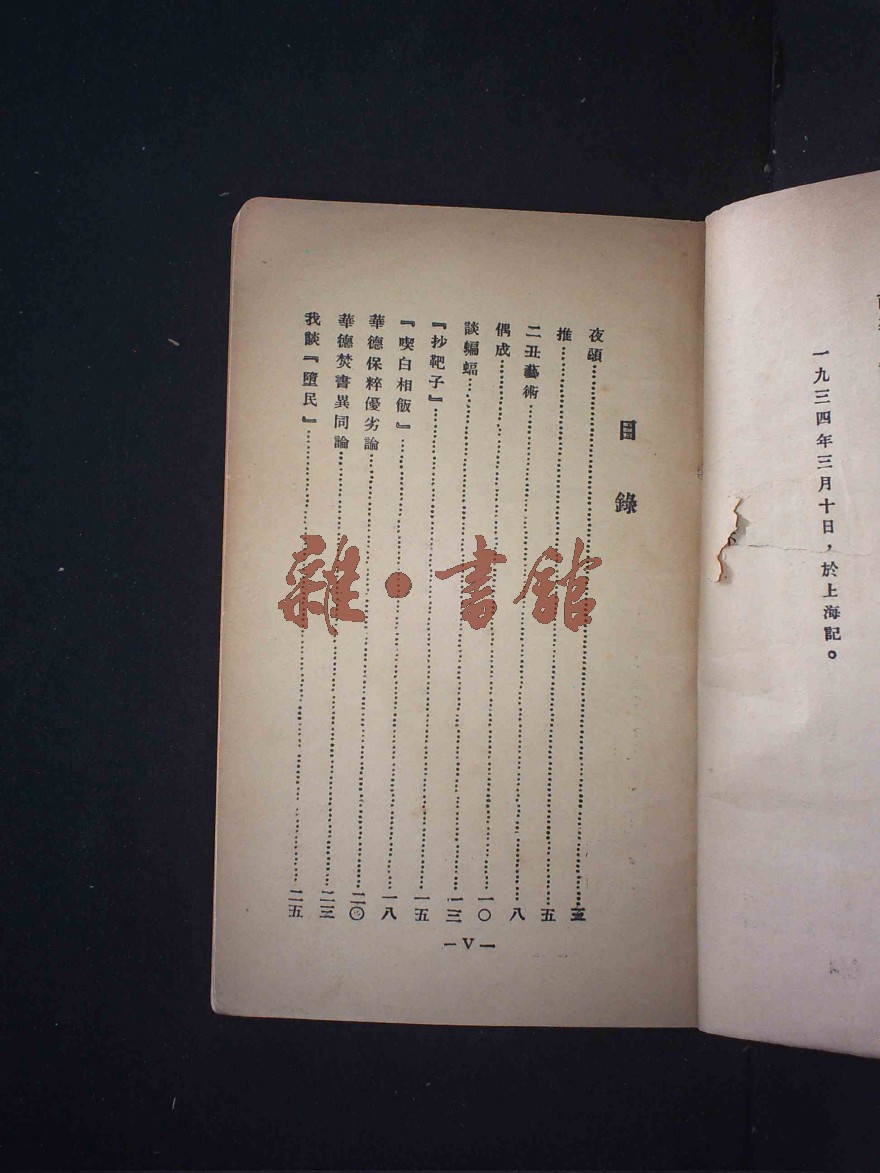 一九三四年三月十日，於上海記。
目錄
夜頌……三
推……五
二丑藝術……八
偶成……一〇
談蝙蝠……一三
『抄靶子』……一五
『喫白相飯』……一八
華德保粹優劣論……二〇
華德焚書異同論……二三
我談『墮民』……二五
—V—
雜·書館